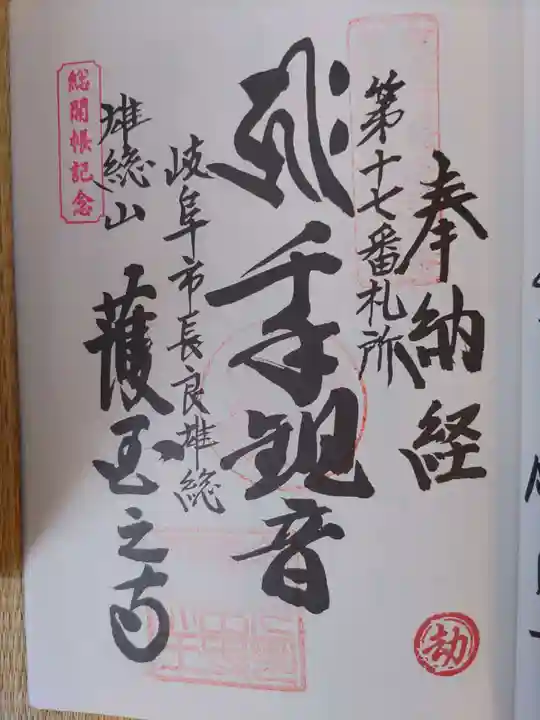 奉納経
第十七番札所
千手観音
岐阜市長良雄総
雄総山
護国之寺
総開帳記念
劫